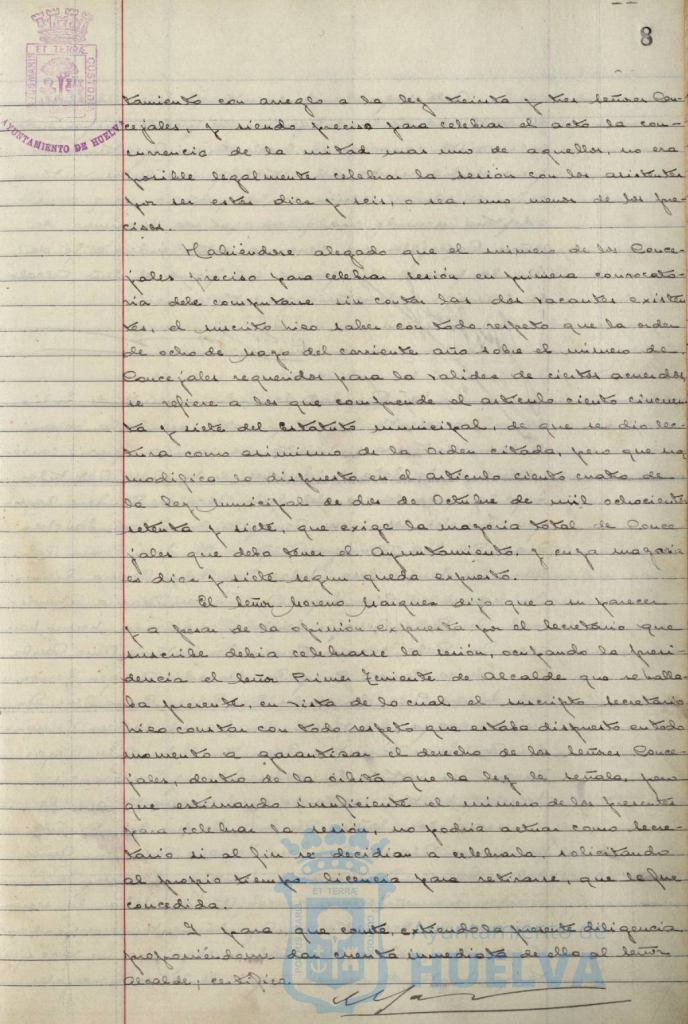 8
ET TERRÆ
CUSTODIO
AYUNTAMIENTO DE HUELVA
tamiento con arreglo a la ley treinta y tres Señores Con-
cejales, y siendo preciso para celebrar el acto la con-
currencia de la mitad mas uno de aquellos, no era
posible legalmente celebrar la sesión con los asistentes
por ser estos diez y seis, o sea, uno menos de los pre-
cisos.
Habiéndose alegado que el número de los Conce-
jales preciso para celebrar sesión en primera convocato-
ria debe computarse sin contar las dos vacantes existen-
tes, el suscrito hizo saber con todo respeto que la orden
de ocho de Mayo del corriente año sobre el número de
Concejales requeridos para la validez de ciertos acuerdos
se refiere a los que comprende el artículo ciento cincuen-
ta y siete del Estatuto municipal, de que se dio lec-
tura como asimismo de la Orden citada, pero que no
modifica lo dispuesto en el artículo ciento cuatro de
la Ley Municipal de dos de Octubre de mil ochocientos
setenta y siete, que exige la mayoría total de Conce-
jales que deba tener el Ayuntamiento, y cuya mayoría
es diez y siete segun queda expuesto.
El Señor Moreno Marquez dijo que a su parecer
y a pesar de la opinión expuesta por el Secretario que
suscribe debia celebrarse la sesión, ocupando la presi-
dencia el Señor Primer Teniente de Alcalde que se halla-
ba presente, en vista de lo cual el suscripto Secretario
hizo constar con todo respeto que estaba dispuesto en todo
momento a garantizar el derecho de los Señores Conce-
jales, dentro de la órbita que la ley le señala, pero
que estimando insuficiente el número de los presentes
para celebrar la sesión, no podria actuar como Secre-
tario si al fin se decidian a celebrarla, solicitando
al propio tiempo licencia para retirarse, que le fue
concedida.
Y para que conste, extiendo la presente diligencia
proponiéndome dar cuenta inmediata de ello al Señor
Alcalde; certifico.
ET TERRÆ
Ayuntamiento de
HUELVA